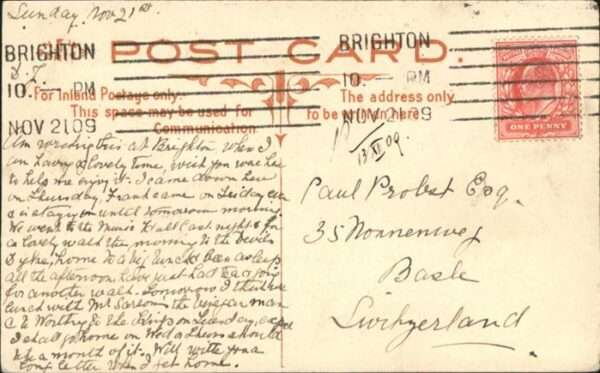 Sunday Nov 21st.
BRIGHTON
10. PM
NOV 21 09
BRIGHTON
10. PM
NOV 21 09
POST CARD.
For Inland Postage only
This space may be used for
Communication
The address only
to be written here
ONE PENNY
Am writing this at Brighton where I
am having a lovely time, wish you were here
to help me enjoy it. I came down here
on Thursday, Frank came on Friday eve
& is staying until tomorrow morning.
We went to the Music Hall last night & for
a lovely walk this morning to the Devils
Dyke, home to a big lunch & been asleep
all the afternoon, have just had tea & going
for another walk. Tomorrow I
lunch with Mr the vinegar man
at Worthing & the on Tuesday,
I shall go home on Wed or Thurs should
like a month of it. Will write you a
long letter when I get home.
13 XI 09.
Paul Probst Esq.
35 Nonnenweg
Basle
Switzerland.